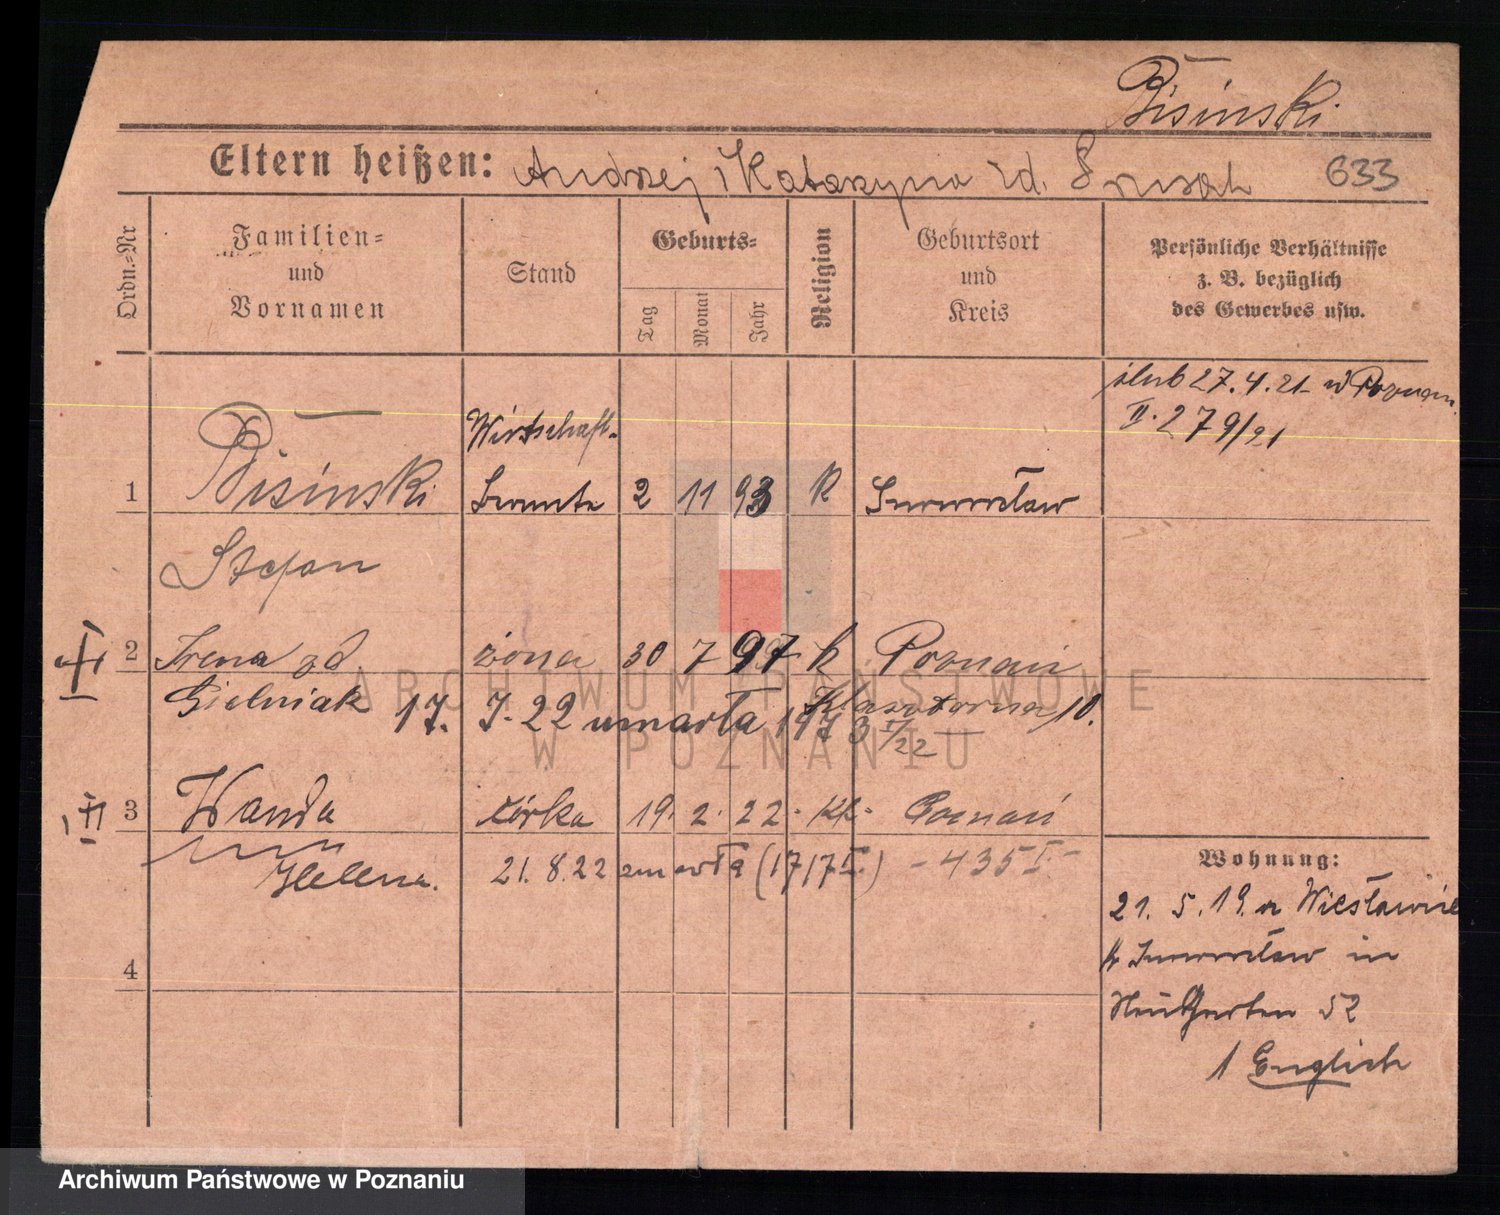 Bisinski
Eltern heißen: Andrzej i Katarzyna zd. 633
Ordn.-Nr
Familien=
und
Vornamen
Stand
Geburts=
Tag
Monat
Jahr
Religion
Geburtsort
und
Kreis
Persönliche Verhältnisse
z. B. bezüglich
des Gewerbes usw.
ślub 27.4.21 w Poznan
II. 279/21
1 Bisinski Wirtschafts- 2 11 93 K Inowrocław
Stefan
2 Irena zd. żona 30 7 97 k Poznań
Gielniak Klasztorna 10.
17. I. 22 umarła 173 I/22
3 Wanda córka 19. 2. 22. kk. Poznań
Helena. 21. 8. 22 umarła (1717 II.) - 435 I -
4
Wohnung:
21. 5. 19. a Wiesławic
k Inowrocław in
Neu Garten 52
1 Englich
ARCHIWUM PAŃSTWOWE
W POZNANIU
Archiwum Państwowe w Poznaniu